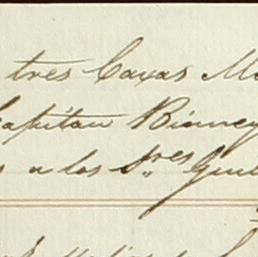 tres Cayas M
Capitan Binney
s a los Sres Gui